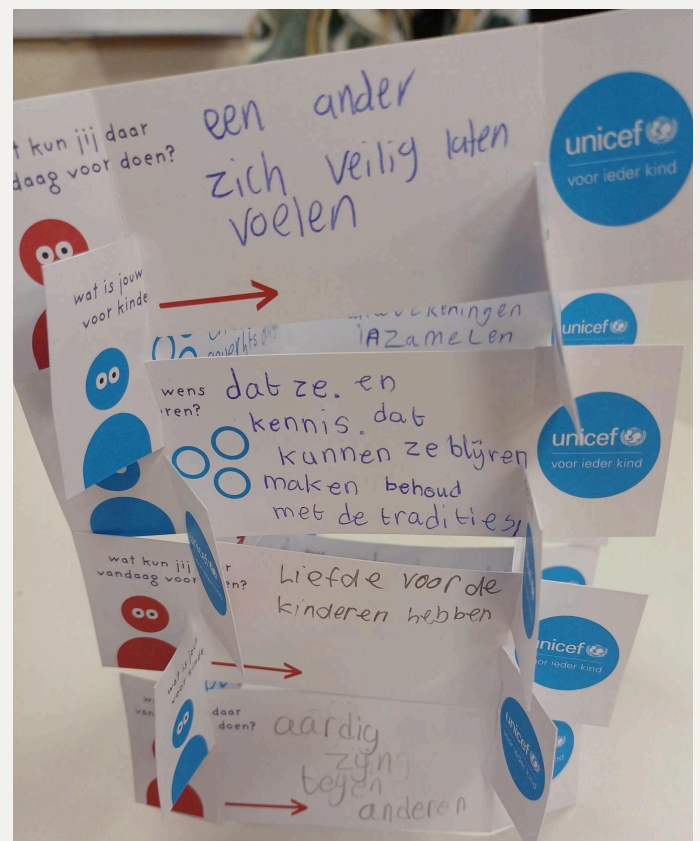 t kun jij daar
daag voor doen?
een ander
zich veilig laten
voelen
unicef
voor ieder kind
wat is jouw
voor kinde
keningen
AZameLen
unicef
wens
ren?
dat ze. en
kennis. dat
kunnen ze blijven
maken behoud
met de tradities,
unicef
voor ieder kind
wat kun jij
vandaag voor
r
en?
Liefde voor de
kinderen hebben
unicef
voor ieder kind
nicef
oor ieder kind
wat is jouw
voor kinde
daar
doen?
aardig
zijng
tegen
anderen
unicef
voor ieder kind